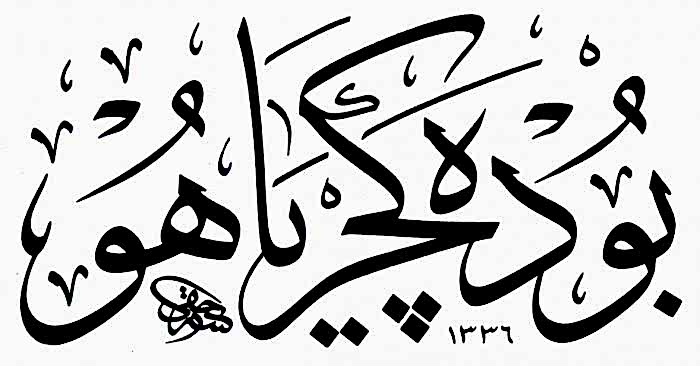 بوده كچر يا هو
١٣٣٦